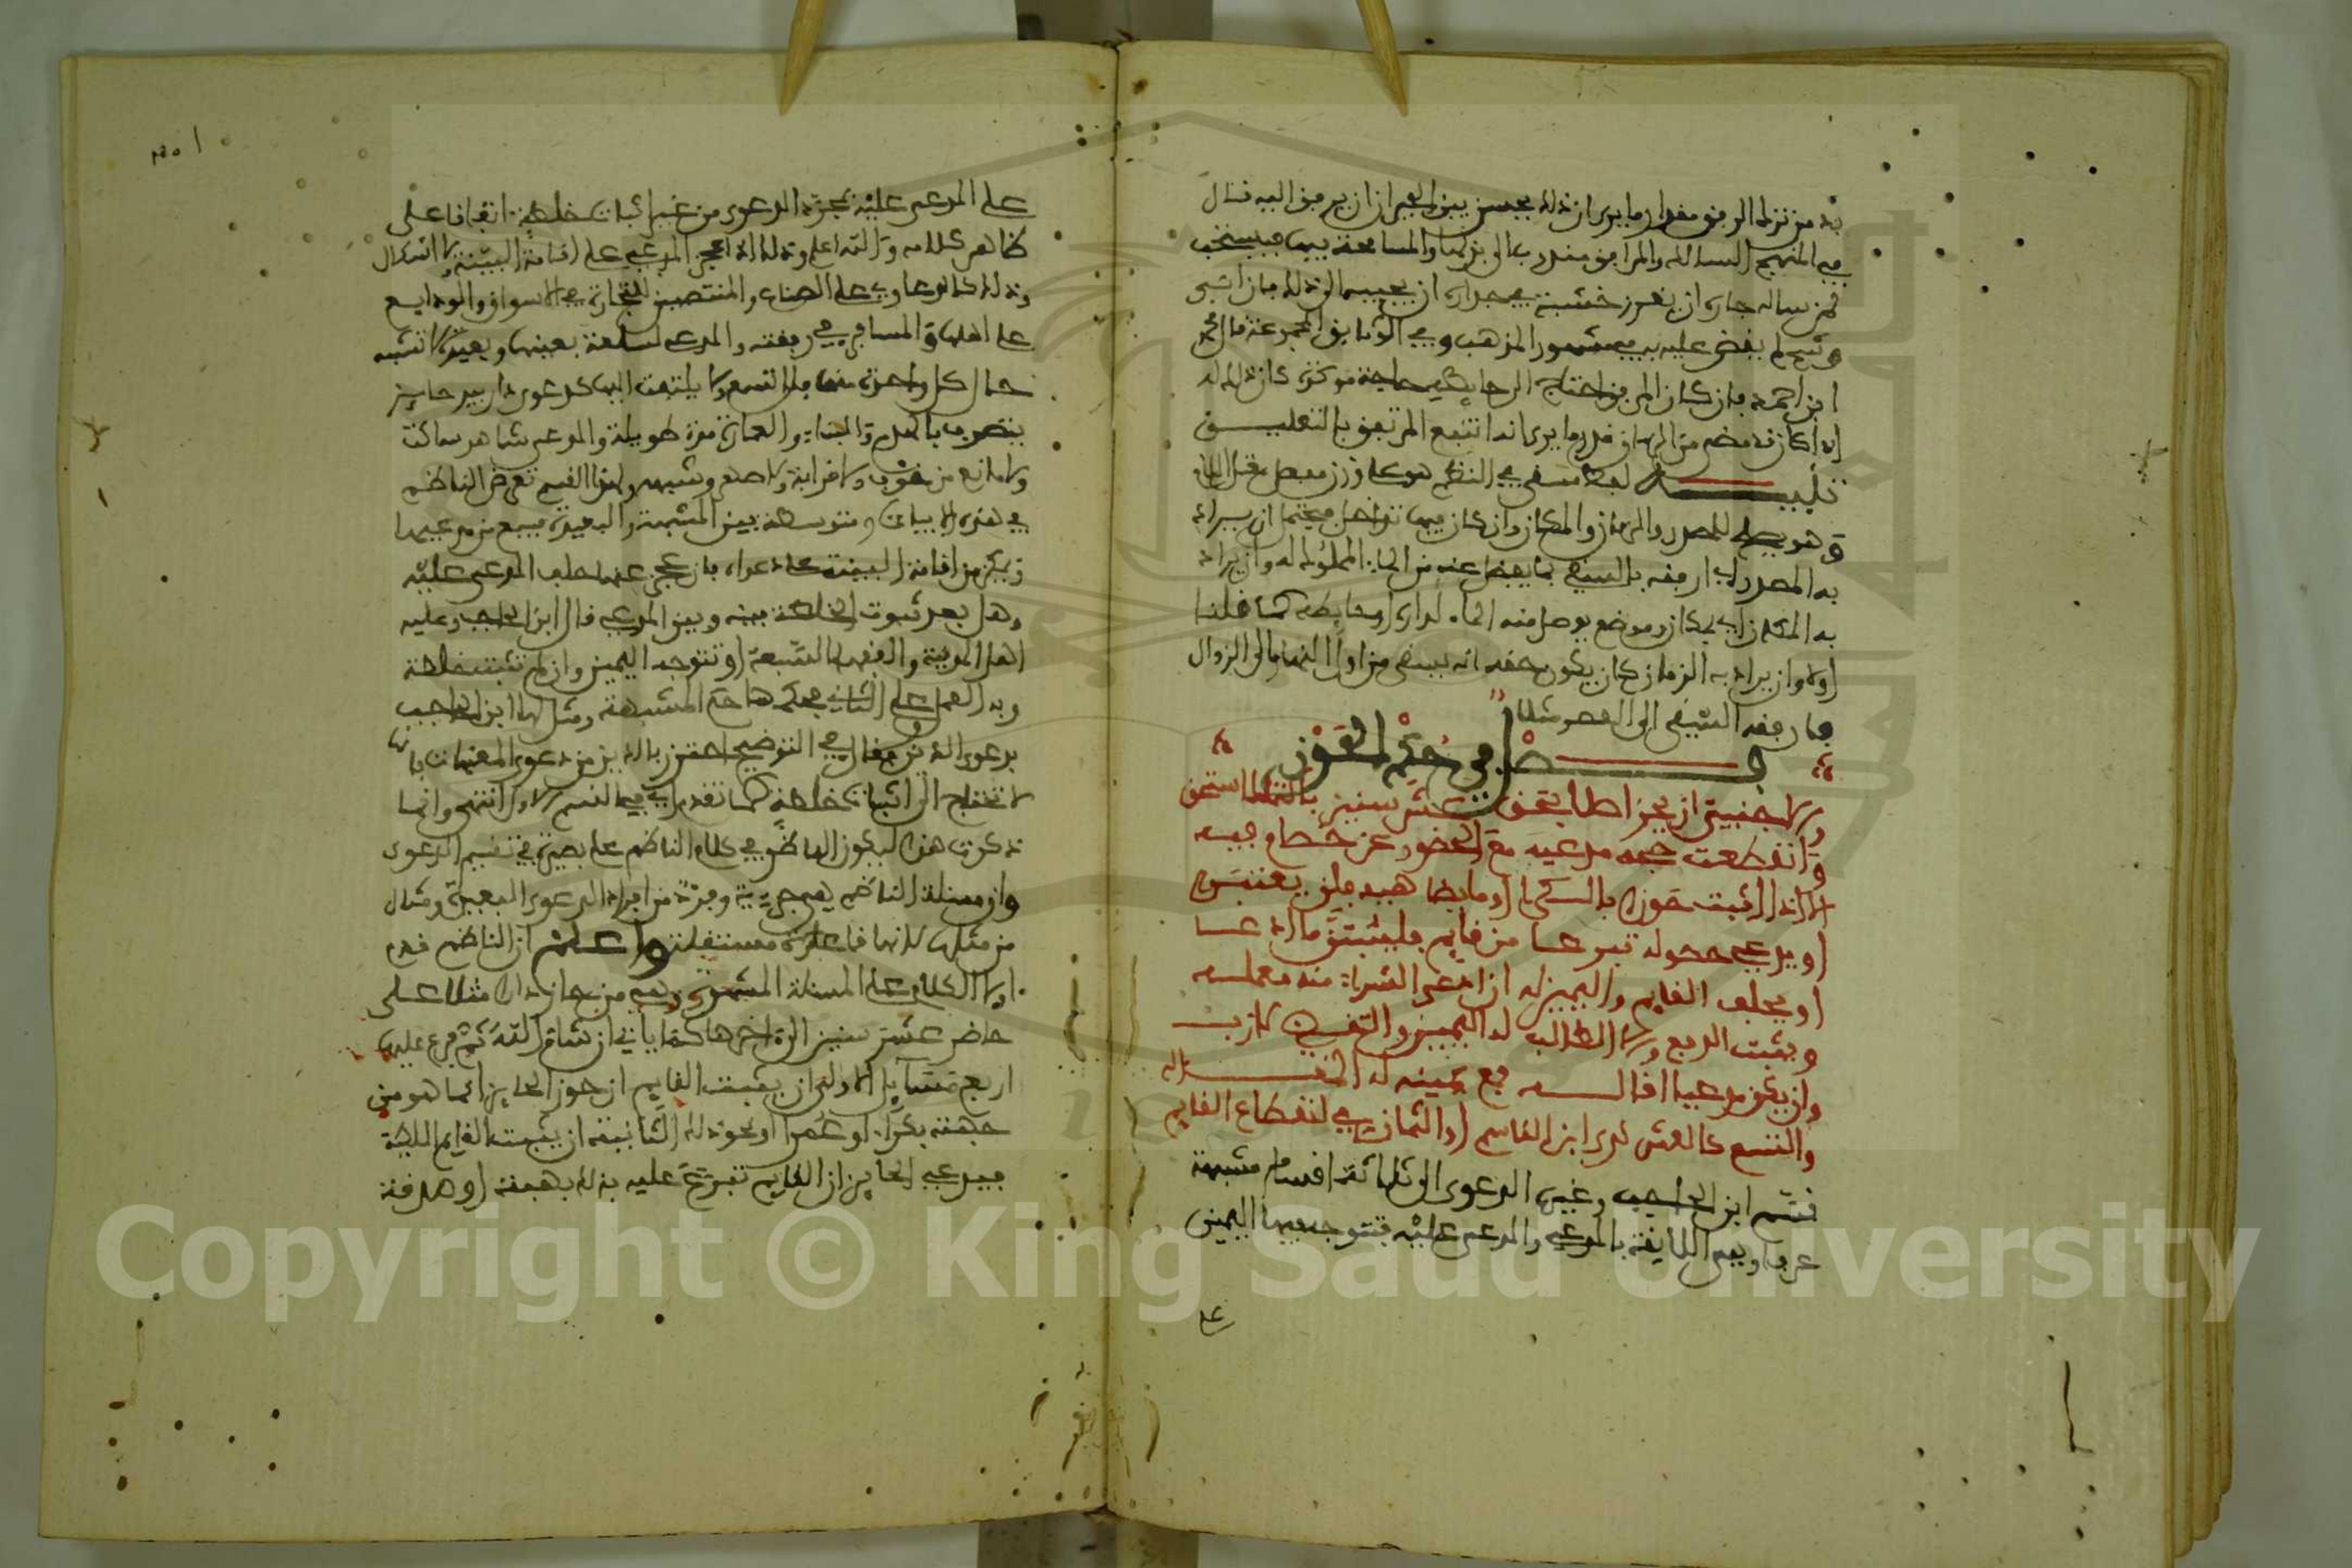 به من ترك المرفق مقدار ما يرى ان ذلك يحسن بين الجيران ان يرفق اليه قال
في المنهج السالك والمرافق مندوب الى بذلها والمسامحة فيها فيستحب
لمن ساله جاره ان يغرز خشبة في جداره ان يجيبه الى ذلك فان ابى
وشح لم يقض عليه به في مشهور المذهب وفي الوثائق المجموعة قال
ابن احمد فان كان المرفق احتاج الى حائطه لحاجة مؤكدة كان ذلك له
اذا كان قد مضى من الزمان قدر ما يرى انه انتفع المرتفق بالتعليق
تنبيه لفظ مسقى في النظم هو على وزن مفعل بفتح الميم
وهو يصلح للمصدر والزمان والمكان وان كان فيها تواصل فيحتمل ان يراد
به المصدر اي ارفقه بالسقي بما يفضل عنه من الماء المملوك له وان يراد
به المكان اي بمكان وموضع يوصل منه الماء لداره او حائطه كما قلنا
اولا وان يراد به الزمان كان يكون حقه انه يسقى من اول النهار الى الزوال
فارفقه السقي الى العصر مثلا
فصل في حكم الحوز
والاجنبي ان يحز اصلا بحق عشر سنين فالتملك استحق
وانقطعت حجة مدعيه مع الحضور عن خصام فيه
الا اذا اثبت حوزه بالسكنى او ما يضاهيه فلن يعتبرا
او يدعي حصوله تبرعا من قايم فليثبتن ما ادعا
او يحلف القايم واليمين له ان ادعى الشراء منه معمله
ويثبت الدفع والا الطالب له اليمين والتقضي لازب
وان يكن مدعيا اقاله فمع يمينه له المقاله
والتسع كالعشر لدى ابن القاسم او الثمان في انقطاع القايم
قسم ابن الحاجب وغيره الدعوى الى ثلاثة اقسام مشبهة
عرفا وهي اللايقة بالمدعي والمدعى عليه فتتوجه فيها اليمين
على
على المدعى عليه بمجرد الدعوى من غير اثبات خلطة اتفاقا على
ظاهر كلامه والله اعلم وذلك اذا عجز المدعي على اقامة البينة ولا اشكال
وذلك كالدعاوي على الصناع والمنتصبين للتجارة في الاسواق والودايع
على اهلها والمسافر في رفقته والمدعي لسلعة بعينها وبعيدة لا تشبه
حال كل واحد منهما فلا تسمع ولا يلتفت اليها كدعوى دار بيد حايز
يتصرف بالهدم والبناء والعمارة مدة طويلة والمدعي شاهد ساكت
ولا مانع من خوف ولا قرابة ولا صهر وشبهه ولهذا القسم تعرض الناظم
في هذه الابيات ومتوسطة بين المشبهة والبعيدة فيسمع من مدعيها
ويمكن من اقامة البينة على دعواه فان عجز عنها حلف المدعى عليه
وهل بعد ثبوت الخلطة بينه وبين المدعي قال ابن الحاجب وعليه
اهل المدينة والفقهاء السبعة او تتوجه اليمين وان لم تثبت خلطة
وبه العمل على الثاني فحكمها حكم المشبهة ومثل لها ابن الحاجب
بدعوى الدين وقال في التوضيح احترز بالدين من دعوى المعينات فانها
لا تحتاج الى اثبات خلطة كما تقدم اي في القسم الاول انتهى وانما
ذكرت هذا ليكون الناظر في كلام الناظم على بصيرة في تقسيم الدعوى
وان مسئلة الناظم هي جزئية وفرد من افراد الدعوى البعيدة ومثال
من مثلها لانها قاعدة مستقلة واعلم ان الناظم قدم
اولا الكلام على المسئلة المشهورة وهي من حاز دارا مثلا على
حاضر عشر سنين الى اخرها كما ياتي ان شاء الله ثم فرع عليها
اربع مسايل الاولى ان يثبت القايم ان حوز الحايز انما هو من
جهته بكراء او عمرا او نحو ذلك الثانية ان يثبت القايم الملك
فيدعي الحايز ان القايم تبرع عليه بذلك بهبة او صدقة